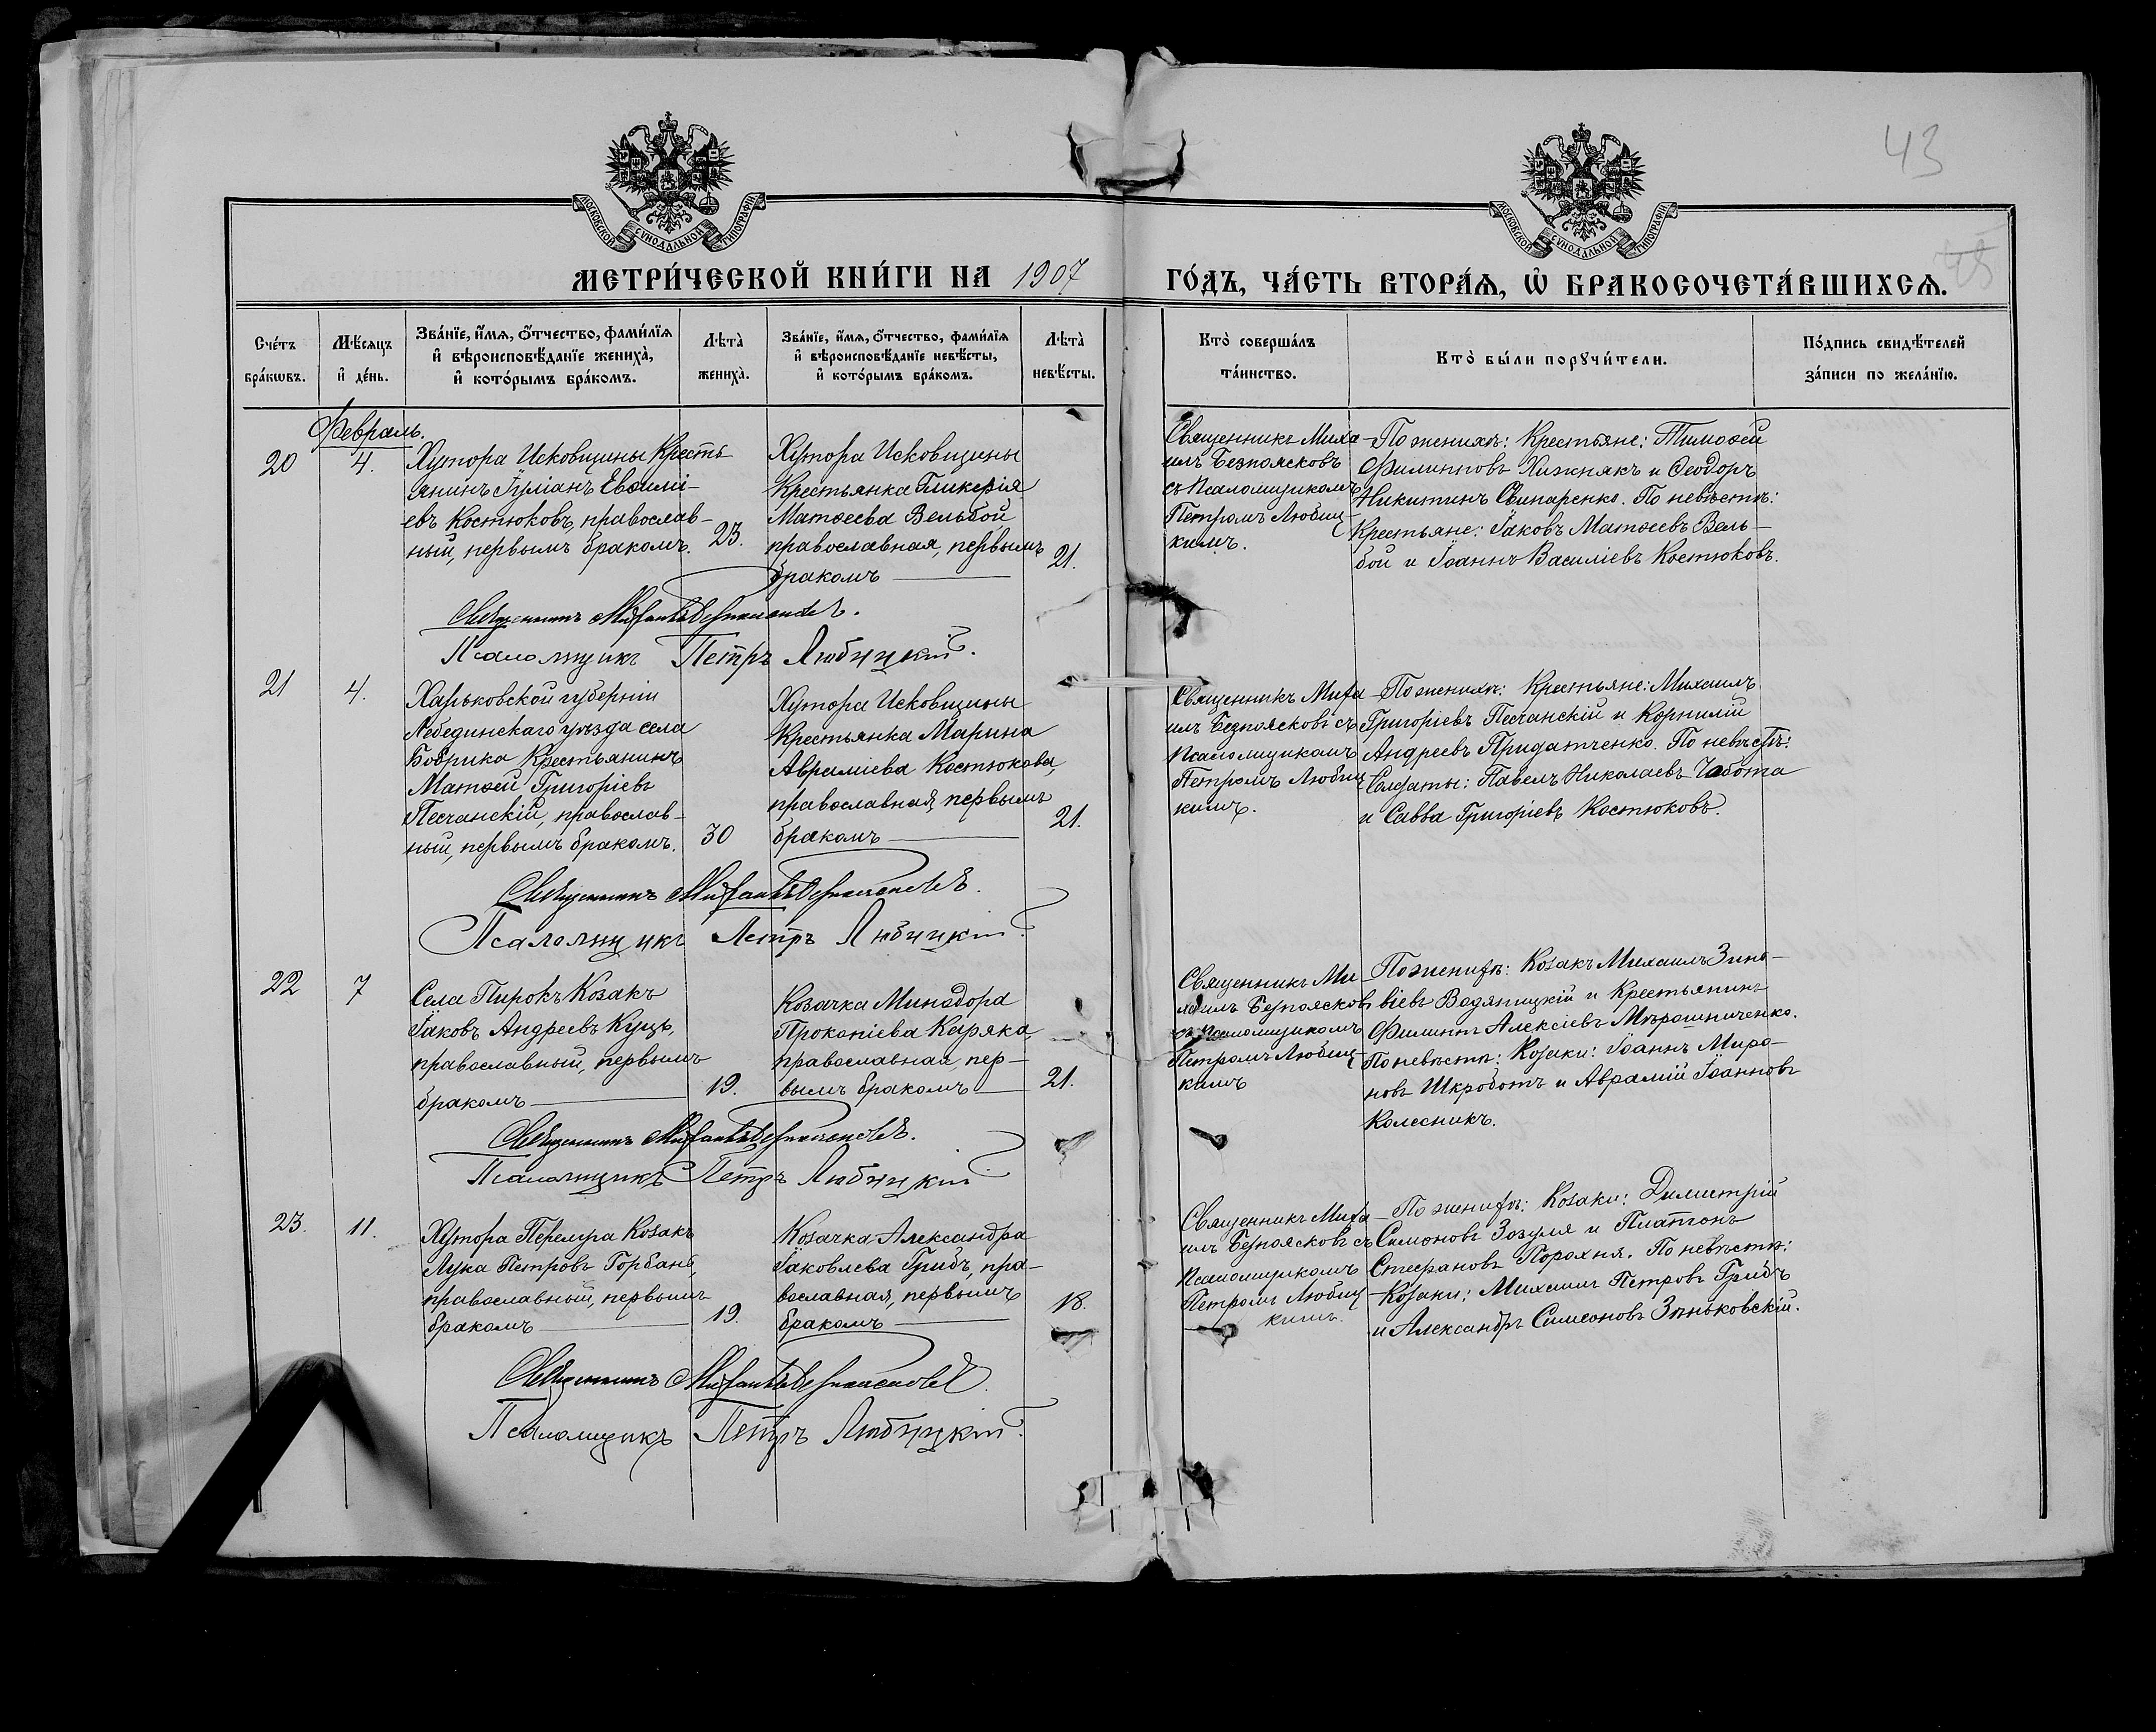 43
45
МОСКОВСКОЙ СѴНОДАЛЬНОЙ ТИПОГРАФІИ
МОСКОВСКОЙ СѴНОДАЛЬНОЙ ТИПОГРАФІИ
МЕТРИ́ЧЕСКОЙ КНИ́ГИ НА 1907
ГО́ДЪ, ЧА́СТЬ ВТОРА́Ѧ, Ѿ БРАКОСОЧЕТА́ВШИХСѦ.
Сче́тъ
бра́кѡвъ.
Мѣ́сяцъ
и҆ де́нь.
Зва́нїе, и҆́мѧ, ѻ҆́тчество, фами́лїѧ
и҆ вѣроисповѣ́данїе жениха̀,
и҆ кото́рымъ бра́комъ.
Лѣта̀
жениха̀.
Зва́нїе, и҆́мѧ, ѻ҆́тчество, фами́лїѧ
и҆ вѣроисповѣ́данїе невѣ́сты,
и҆ кото́рымъ бра́комъ.
Лѣта̀
невѣ́сты.
Кто̀ соверша́лъ
та́инство.
Кто̀ бы́ли порꙋчи́тели.
По́дпись свидѣ́телей
за́писи по жела́нїю.
Февраль.
20
4.
Хутора Исковщины Кресть
янинъ Іуліанъ Евѳимі-
евъ Костюковъ, православ-
ный, первымъ бракомъ.
23.
Хутора Исковщины
Крестьянка Гликерія
Матѳеева Вельбой,
православная, первымъ
бракомъ
21.
Священникъ Миха
илъ Безпоясковъ
съ Псаломщикомъ
Петромъ Любиц-
кимъ.
По женихѣ: Крестьяне: Тимоѳей
Филипповъ Хижнякъ и Ѳеодоръ
Никитинъ Свинаренко. По невѣстѣ:
Крестьяне: Іаковъ Матѳеевъ Вель-
бой и Іоаннъ Василіевъ Костюковъ.
Священникъ Михаилъ Безпоясковъ.
Псаломщикъ Петръ Любицкій.
21
4.
Харьковской губерніи
Лебединскаго уѣзда села
Бобрика Крестьянинъ
Матѳей Григоріевъ
Песчанскій, православ-
ный, первымъ бракомъ.
30
Хутора Исковщины
Крестьянка Марина
Авраміева Костюкова,
православная, первымъ
бракомъ
21.
Священникъ Миха
илъ Безпоясковъ съ
Псаломщикомъ
Петромъ Любиц
кимъ.
По женихѣ: Крестьяне: Михаилъ
Григоріевъ Песчанскій и Корнилій
Андреевъ Придатченко. По невѣстѣ:
Солдаты: Павелъ Николаевъ Чабота
и Савва Григоріевъ Костюковъ.
Священникъ Михаилъ Безпоясковъ.
Псаломщикъ Петръ Любицкій.
22
7
Села Пирокъ Козакъ
Іаковъ Андреевъ Куцъ,
православный, первымъ
бракомъ
19.
Козачка Минодора
Прокопіева Каряка,
православная, пер-
вымъ бракомъ
21.
Священникъ Ми
хаилъ Безпоясковъ
съ Псаломщикомъ
Петромъ Любиц-
кимъ
По женихѣ: Козакъ Михаилъ Зино-
віевъ Водяницкій и Крестьянинъ
Филиппъ Алексіевъ Мѣрошниченко.
По невѣстѣ: Козаки: Іоаннъ Миро-
новъ Шкроботъ и Аврамій Іоанновъ
Колесникъ.
Священникъ Михаилъ Безпоясковъ.
Псаломщикъ Петръ Любицкій
23.
11.
Хутора Перелура Козакъ
Лука Петровъ Горбань,
православный, первымъ
бракомъ
19.
Козачка Александра
Іаковлева Грибъ, пра-
вославная, первымъ
бракомъ
18.
Священникъ Миха
илъ Безпоясковъ съ
Псаломщикомъ
Петромъ Любиц
кимъ.
По женихѣ: Козаки: Димитрій
Симоновъ Зозуля и Платонъ
Стефановъ Порохня. По невѣстѣ:
Козаки: Михаилъ Петровъ Грибъ
и Александръ Симеоновъ Зѣньковскій.
Священникъ Михаилъ Безпоясковъ.
Псаломщикъ Петръ Любицкій.